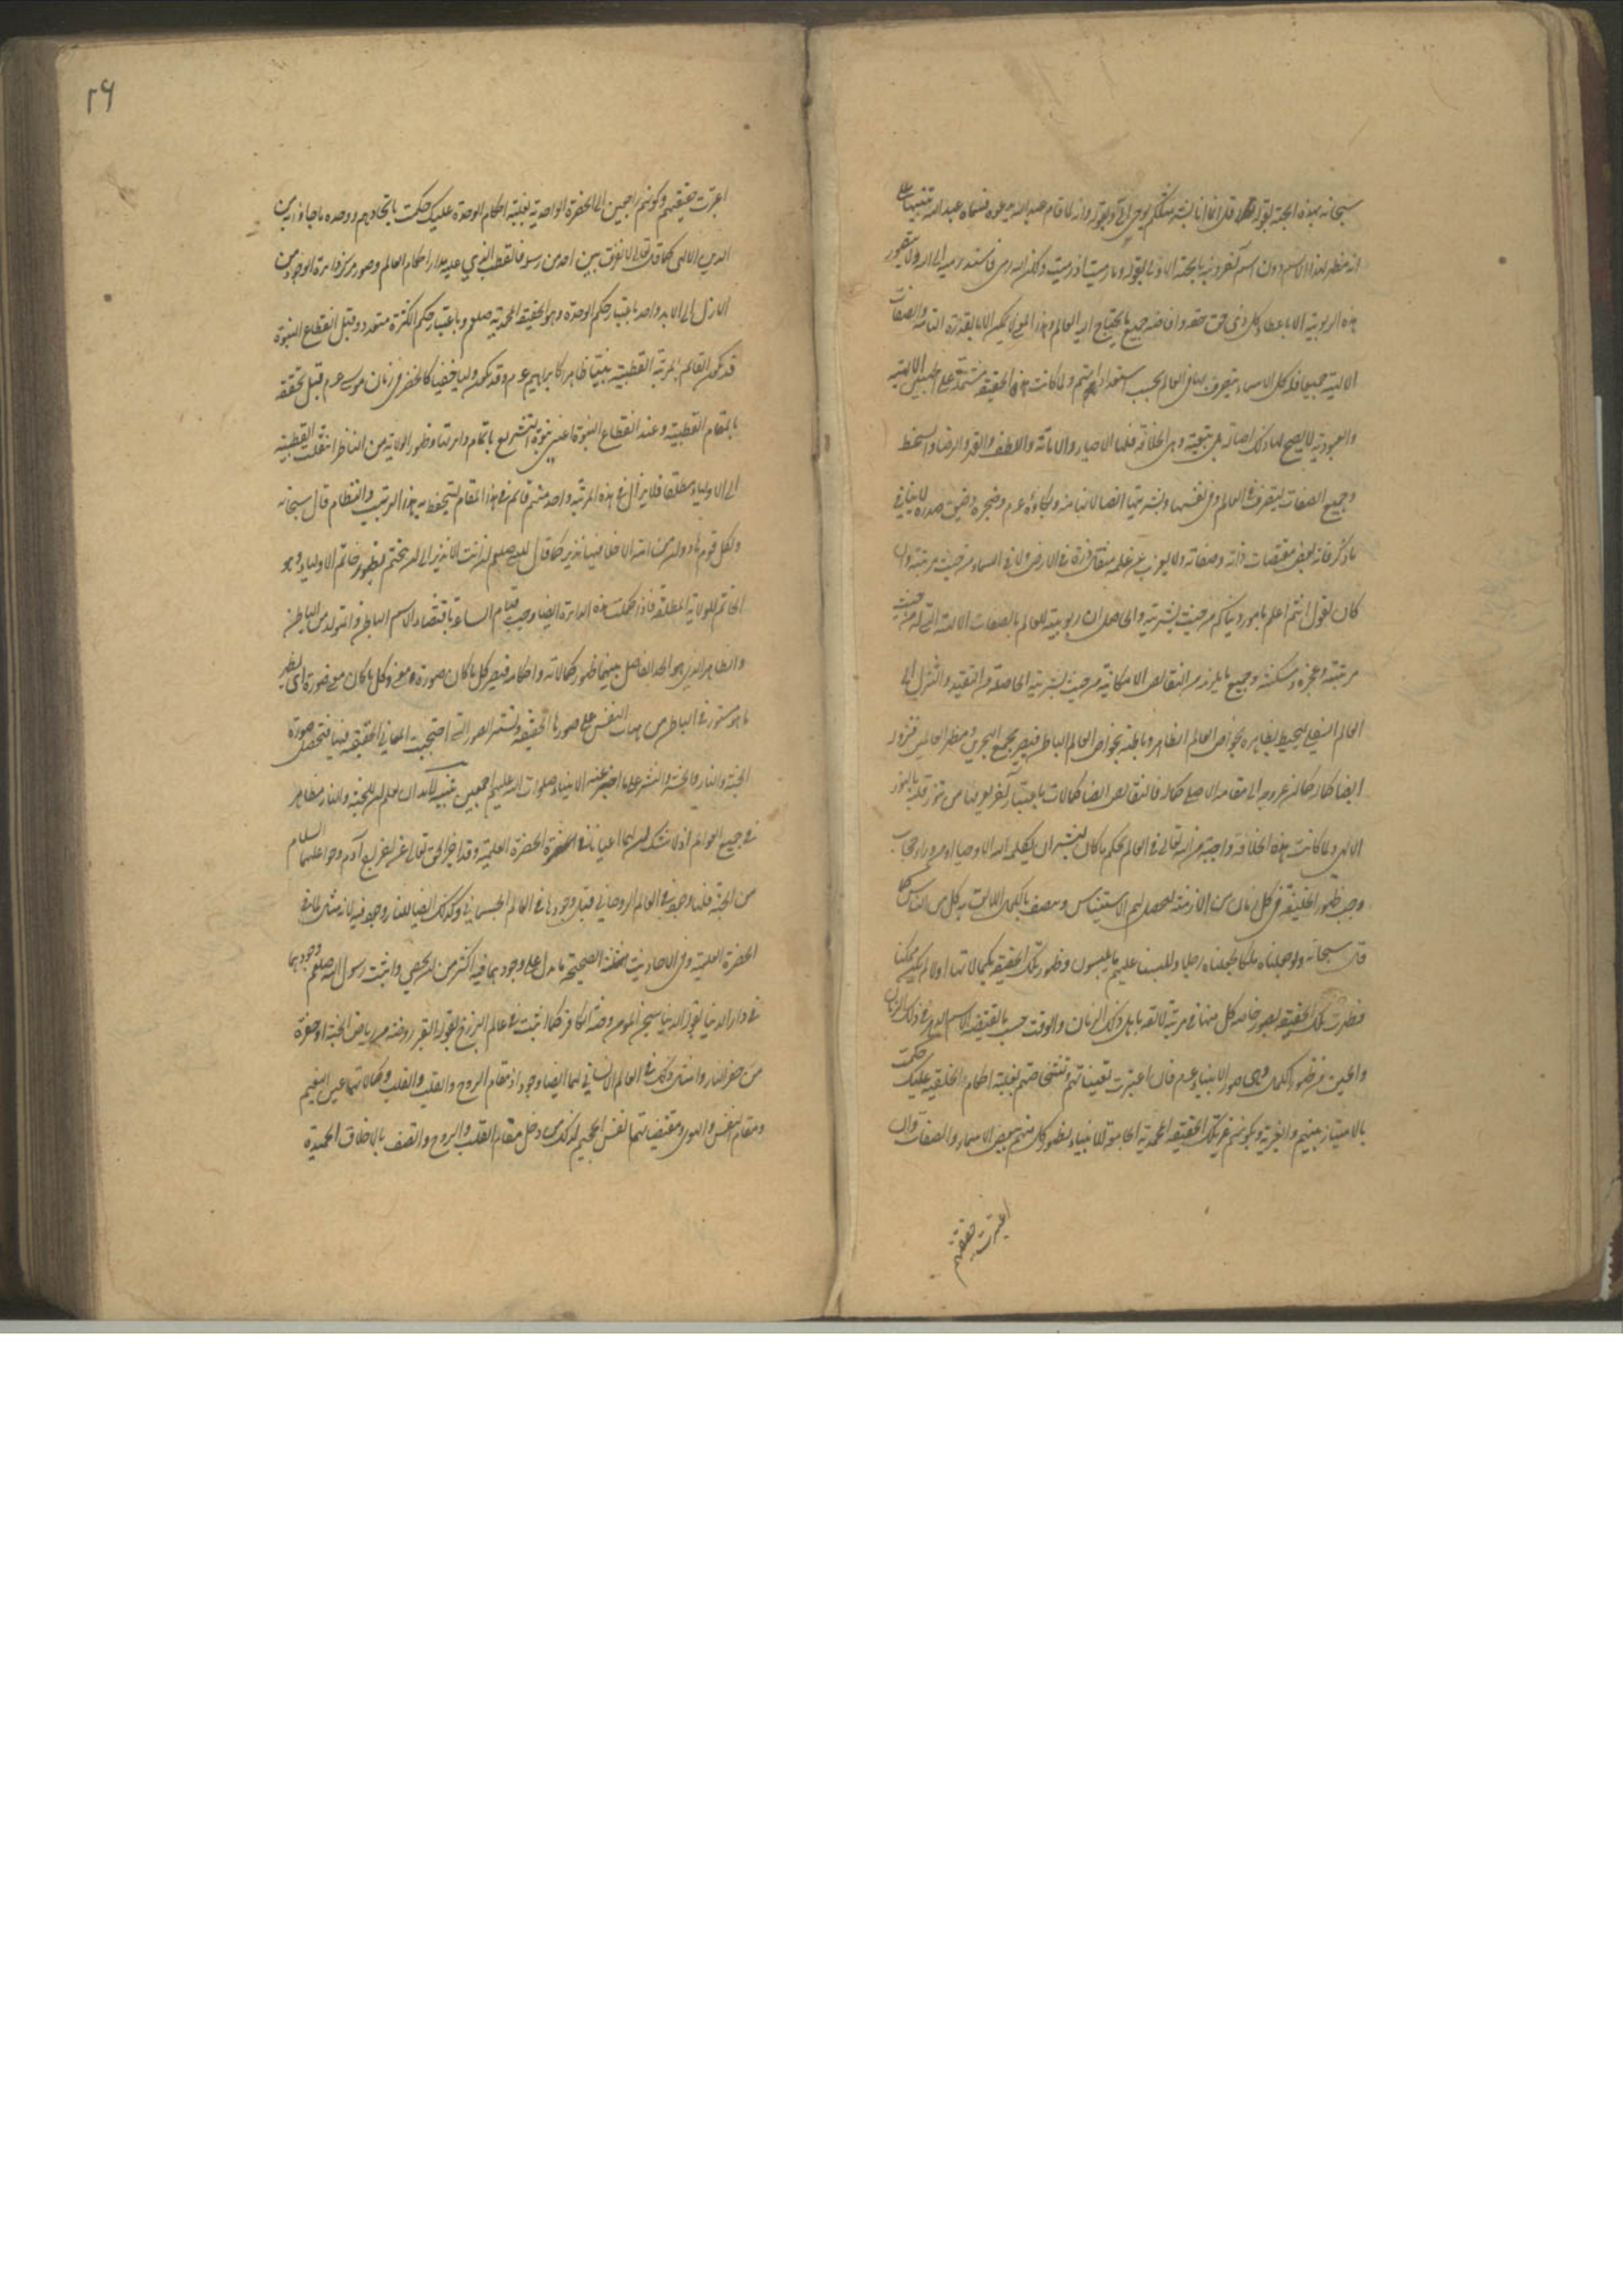 سبحانه بهذه الجهة بقوله قل انما انا بشر مثلكم يوحى الي وبقوله وانه لما قام عبد الله يدعوه فسماه عبد الله تنبيها على
انه مظهر لهذا الاسم دون اسم آخر ونبه بالجهة الاولى بقوله وما رميت اذ رميت ولكن الله رمى فاسند رميه الى الله ولا يتصور
هذه الربوبية الا باعطاء كل ذي حق حقه وافاضة جميع ما يحتاج اليه العالم وهذا المعنى لا يمكن الا بالقدرة التامة والصفات
الالهية جميعا فله كل الاسماء يتصرف بها في العالم بحسب استعداداتهم ولما كانت هذه الحقيقة مشتملة على الجهتين الالهية
والعبودية لا يصح لها ذلك اصالة بل تبعية وهي الخلافة فلها الاحياء والاماتة واللطف والقهر والرضا والسخط
وجميع الصفات ليتصرف في العالم وفي نفسها وبشريتها ايضا لانها منه وبكاؤه عم وضجره وضيق صدره لا ينافي
ما ذكر فانه بعض مقتضيات ذاته وصفاته ولا يعزب عن علمه مثقال ذرة في الارض ولا في السماء من حيث مرتبته وان
كان يقول انتم اعلم بامور دنياكم من حيث بشريته والحاصل ان ربوبيته للعالم بالصفات الالهية التي له من حيث
مرتبته وعجزه ومسكنته وجميع ما يلزمه من النقائص الامكانية من حيث بشريته الحاصلة من التقيد والتنزل الى
العالم السفلي ليحيط بظاهره بخواص العالم الظاهر وبباطنه بخواص العالم الباطن فيصير مجمع البحرين ومظهر العالمين فنزوله
ايضا كماله كما ان عروجه الى مقامه الاصلي كماله فالنقائص ايضا كمالات باعتبار آخر يعرفها من تنور قلبه بالنور
الالهي ولما كانت هذه الخلافة واجبة من الله تعالى في العالم بحكم ما كان لبشر ان يكلمه الله الا وحيا او من وراء حجاب
وجب ظهور الخليفة في كل زمان من الازمنة ليحصل لهم الاستيناس ويتصف بالكمال اللايق به كل من الناس كما
قال سبحانه ولو جعلناه ملكا لجعلناه رجلا وللبسنا عليهم ما يلبسون وظهور تلك الحقيقة بكمالاتها اولا لم يكن ممكنا
فظهرت تلك الحقيقة بصور خاصة كل منها في مرتبة لائقة باهل ذلك الزمان والوقت حسب ما يقتضيه الاسم الدهر في ذلك الزمان
والحين من ظهور الكمال وهي صور الانبياء عم فان اعتبرت تعيناتهم وتشخصاتهم لغلبة احكام الخلقية عليك حكمت
بالامتياز بينهم والغيرية وبكونهم غير تلك الحقيقة المحمدية الجامعة للانبياء لظهور كل منهم ببعض الاسماء والصفات وان
اعتبرت حقيقتهم
٢٩
اعتبرت حقيقتهم وكونهم راجعين الى الحضرة الواحدية لغلبة احكام الوحدة عليك حكمت باتحادهم ووحدة ما جاؤا به من
الدين الالهي كما قال تعالى لا نفرق بين احد من رسله فالقطب الذي عليه مدار احكام العالم وهو مركز دائرة الوجود من
الازل الى الابد واحد باعتبار حكم الوحدة وهو الحقيقة المحمدية صلعم وباعتبار حكم الكثرة متعدد وقبل انقطاع النبوة
قد يكون القائم بالمرتبة القطبية نبيا ظاهرا كابراهيم عم وقد يكون وليا خفيا كالخضر في زمان موسى عم قبل تحققه
بالمقام القطبية وعند انقطاع النبوة اعني نبوة التشريع باتمام دائرتها وظهور الولاية من الباطن انتقلت القطبية
الى الاولياء مطلقا فلا يزال في هذه المرتبة واحد منهم قائم في هذا المقام لينحفظ به هذا الترتيب والنظام قال سبحانه
ولكل قوم هاد وان من امة الا خلا فيها نذير كما قال لنبيه صلعم ان انت الا نذير الى ان يختم بظهور خاتم الاولياء وهو
الخاتم للولاية المطلقة فاذا كملت هذه الدائرة ايضا وجب قيام الساعة باقتضاء الاسم الباطن والمتولد من الباطن
والظاهر الذي هو الحد الفاصل بينهما ظهور كمالاته واحكامه فيصير كل ما كان صورة معنى وكل ما كان معنى صورة اي يظهر
ما هو مستور في الباطن من هيآت النفس على صورها الحقيقية وتستتر الصور التي احتجبت المعاني الحقيقية فيها فتحصل صورة
الجنة والنار والحشر والنشر على ما اخبر عنه الانبياء صلوات الله عليهم اجمعين تنبيه لا بد ان تعلم ان للجنة والنار مظاهر
في جميع العوالم اذ لا شك ان لهما اعيانا في الحضرة العلمية وقد اخبر الحق تعالى عن اخراج آدم وحوا عليهما السلام
من الجنة فلها وجود في العالم الروحاني قبل وجودها في العالم الجسماني وكذلك ايضا للنار وجود فيه لانه مثال لما في
الحضرة العلمية وفي الاحاديث الصحيحة ما يدل على وجودهما فيه اكثر من ان يحصى واثبت رسول الله صلعم وجودهما
في دار الدنيا بقوله الدنيا سجن المؤمن وجنة الكافر كما اثبت في عالم البرزخ بقوله القبر روضة من رياض الجنة او حفرة
من حفر النار وامثال ذلك وفي العالم الانساني لهما ايضا وجود اذ مقام الروح والقلب وكمالاتهما عين النعيم
ومقام النفس والهوى ومقتضياتهما نفس الجحيم لذلك من دخل مقام القلب والروح واتصف بالاخلاق الحميدة